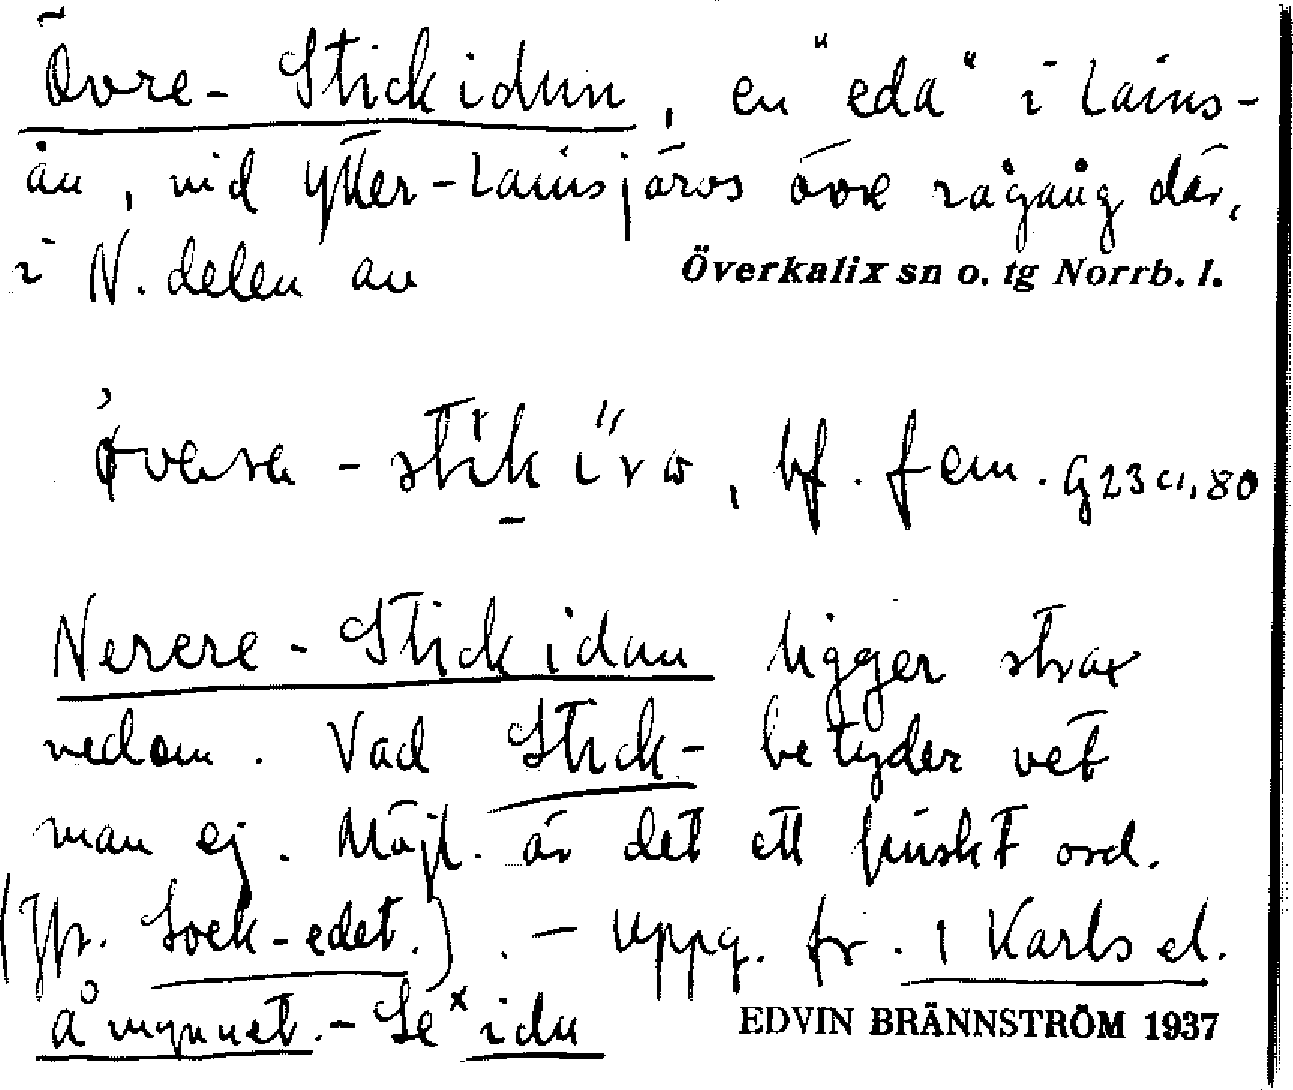 Övre-Stickidun, en "eda" i Lains-
ån, vid Ytter-Lainsjärvs övre rågång där,
i N. delen av Överkalix sn o. tg Norrb. l.
bf. fem.
Nerere-Stickidan ligger strax
nedom. Vad Stick- betyder vet
man ej. Möjl. är det ett finskt ord.
(Jfr. Sock-edet.). – Uppg. fr. 1 Karlsel.
å mynnet. – Se *idu EDVIN BRÄNNSTRÖM 1937